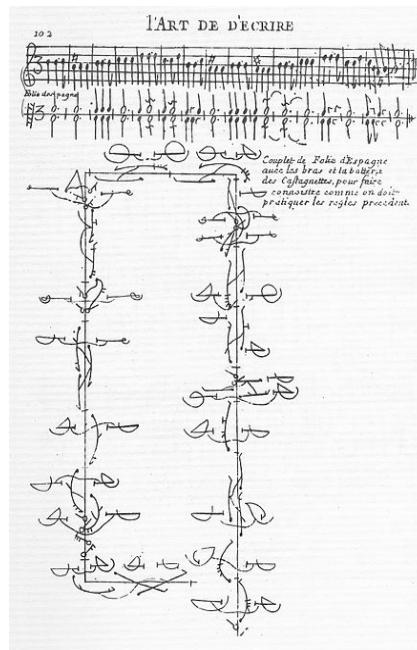 l'ART DE D'ECRIRE
102
Folie despagne
Couplet de Folie d'Espagne
avec les bras et la batterie
des Castagnettes, pour faire
connoistre comme on doit
pratiquer les regles precedent.